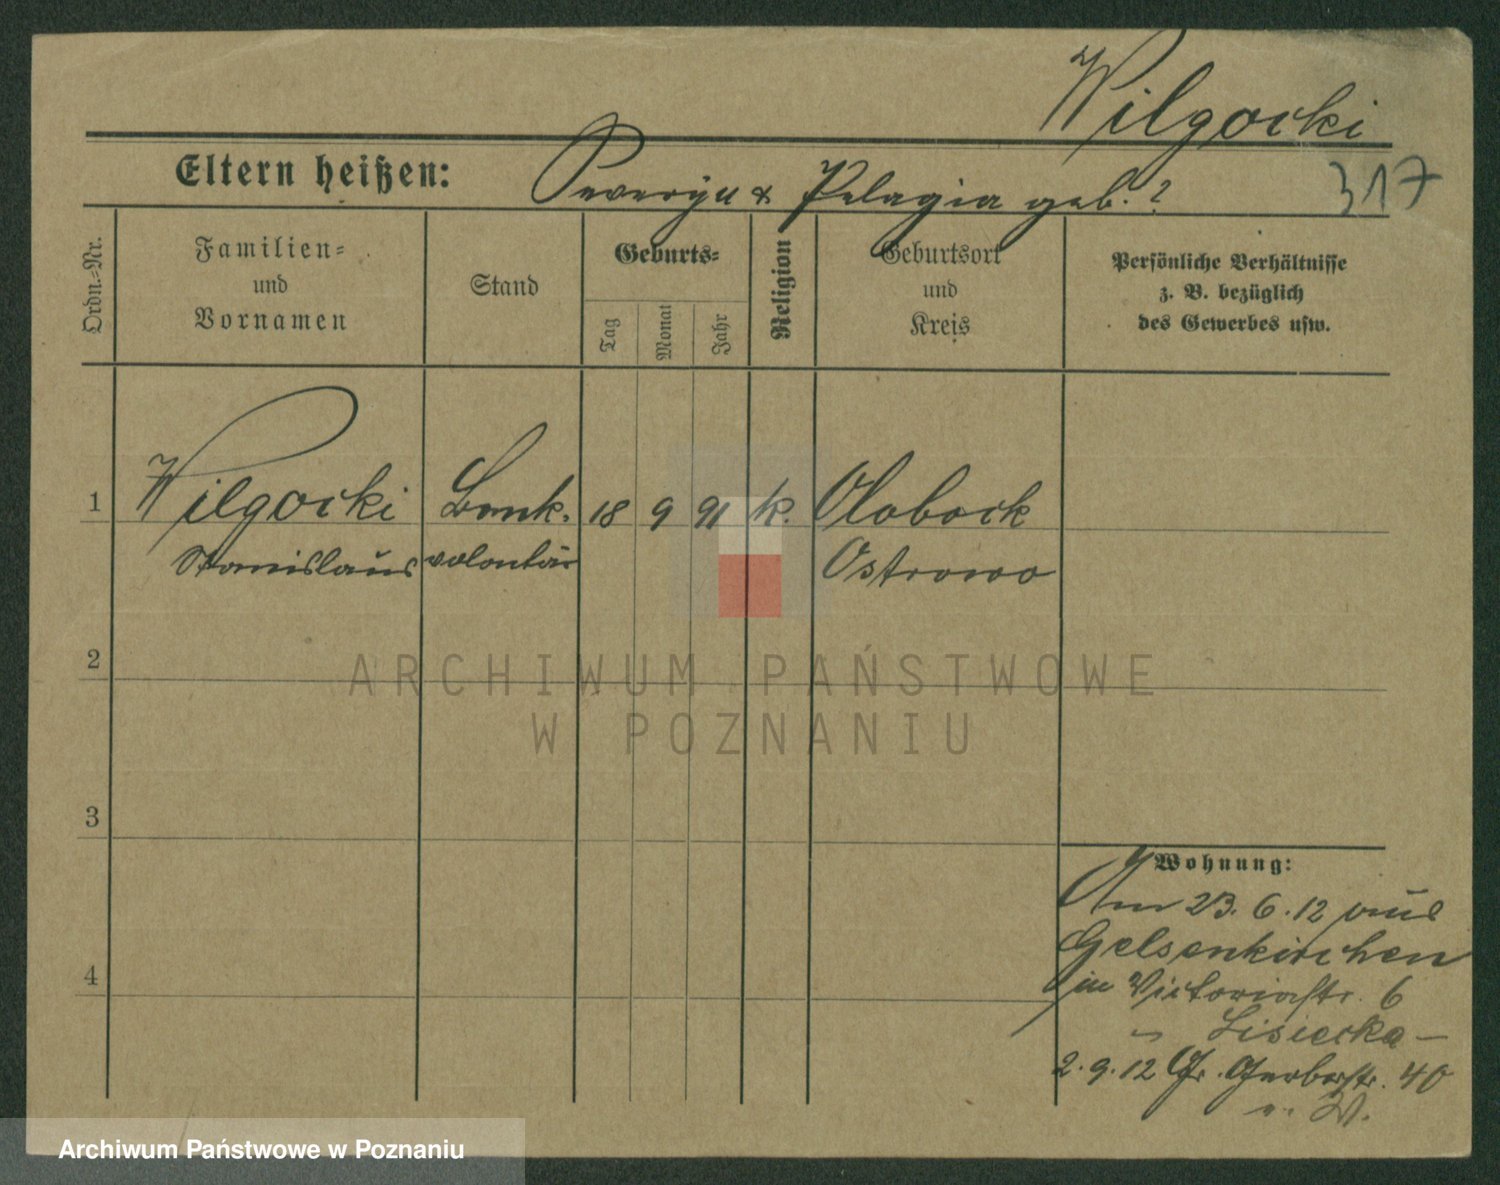 Wilgocki
317
Eltern heißen: & Pelagia geb. ?
Ordn.-Nr.
Familien-
und
Vornamen
Stand
Geburts-
Tag
Monat
Jahr
Religion
Geburtsort
und
Kreis
Persönliche Verhältnisse
z. B. bezüglich
des Gewerbes usw.
1
Wilgocki Bank- 18 9 91 k. Olobock
Stanislaus volontär Ostrowo
2
3
4
Wohnung:
Am 23. 6. 12 aus
Gelsenkirchen
in Victoriastr. 6
Lisiecka —
2. 9. 12 Gr. Gerberstr. 40
ARCHIWUM PAŃSTWOWE
W POZNANIU
Archiwum Państwowe w Poznaniu